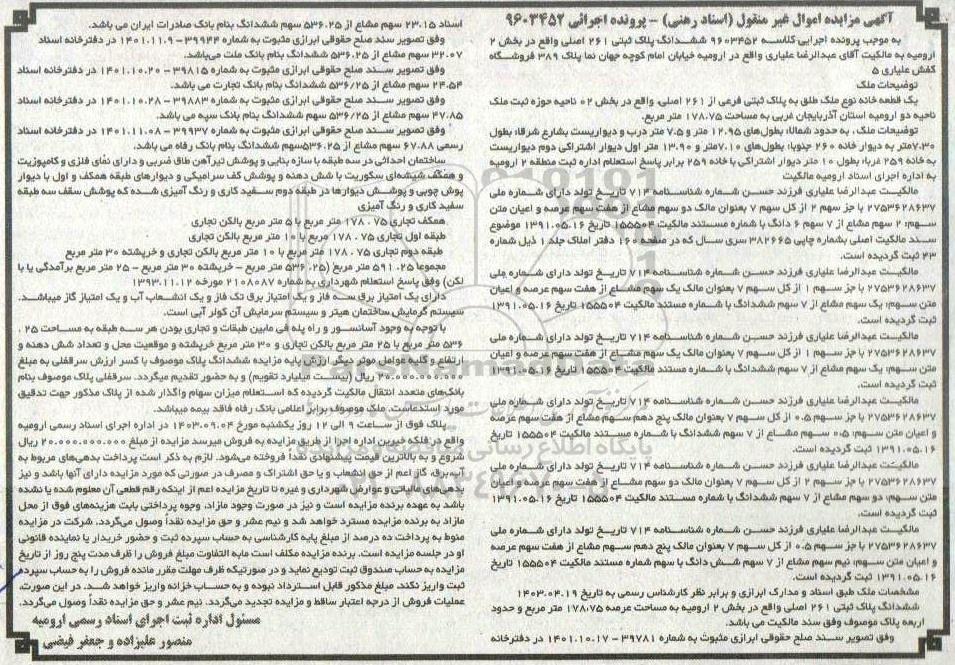 آگهی مزایده اموال غیر منقول (اسناد رهنی) – پرونده اجرائی ۹۶۰۳۴۵۲
به موجب پرونده اجرایی کلاسه ۹۶۰۳۴۵۲ ششدانگ پلاک ثبتی ۲۶۱ اصلی واقع در بخش ۲
ارومیه به مالکیت آقای عبدالرضا علیاری واقع در ارومیه خیابان امام کوچه جهان نما پلاک ۳۸۹ فروشگاه
کفش علیاری ۵
توضیحات ملک
یک قطعه خانه نوع ملک طلق به پلاک ثبتی فرعی از ۲۶۱ اصلی، واقع در بخش ۰۲ ناحیه حوزه ثبت ملک
ناحیه دو ارومیه استان آذربایجان غربی به مساحت ۱۷۸.۷۵ متر مربع.
توضیحات ملک ، به حدود شمالا: بطول‌های ۱۲.۹۵ متر و ۷.۵ متر درب و دیواریست بشارع شرقا: بطول
۷.۳۰متر به دیوار خانه ۲۶۰ جنوبا: بطول‌های ۷.۱۰متر و ۱۳.۹۰ متر اول دیوار اشتراکی دوم دیواریست
به خانه ۲۵۹ غربا: بطول ۱۰ متر دیوار اشتراکی با خانه ۲۵۹ برابر پاسخ استعلام اداره ثبت منطقه ۲ ارومیه
به اداره اجرای اسناد ارومیه مالکیت
مالکیت عبدالرضا علیاری فرزند حسن شماره شناسنامه ۷۱۴ تاریخ تولد دارای شماره ملی
۲۷۵۳۶۲۸۶۳۷ با جز سهم ۲ از کل سهم ۷ بعنوان مالک دو سهم مشاع از هفت سهم عرصه و اعیان متن
سهم: ۲ سهم مشاع از ۷ سهم ۶ دانگ با شماره مستند مالکیت ۱۵۵۵۰۴ تاریخ ۱۳۹۱.۰۵.۱۶ موضوع
سند مالکیت اصلی بشماره چاپی ۳۸۲۶۶۵ سری سال که در صفحه ۱۶۰ دفتر املاک جلد ۱ ذیل شماره
۴۳ ثبت گردیده است.
مالکیت عبدالرضا علیاری فرزند حسن شماره شناسنامه ۷۱۴ تاریخ تولد دارای شماره ملی
۲۷۵۳۶۲۸۶۳۷ با جز سهم ۱ از کل سهم ۷ بعنوان مالک یک سهم مشاع از هفت سهم عرصه و اعیان
متن سهم: یک سهم مشاع از ۷ سهم ششدانگ با شماره مستند مالکیت ۱۵۵۵۰۴ تاریخ ۱۳۹۱.۰۵.۱۶
ثبت گردیده است.
مالکیت عبدالرضا علیاری فرزند حسن شماره شناسنامه ۷۱۴ تاریخ تولد دارای شماره ملی
۲۷۵۳۶۲۸۶۳۷ با جز سهم ۱ از کل سهم ۷ بعنوان مالک یک سهم مشاع از هفت سهم عرصه و اعیان
متن سهم: یک سهم مشاع از ۷ سهم ششدانگ با شماره مستند مالکیت ۱۵۵۵۰۴ تاریخ ۱۳۹۱.۰۵.۱۶
ثبت گردیده است.
مالکیت عبدالرضا علیاری فرزند حسن شماره شناسنامه ۷۱۴ تاریخ تولد دارای شماره ملی
۲۷۵۳۶۲۸۶۳۷ با جز سهم ۰.۵ از کل سهم ۷ بعنوان مالک پنج دهم سهم مشاع از هفت سهم عرصه
و اعیان متن سهم: ۰.۵ سهم مشاع از ۷ سهم ششدانگ با شماره مستند مالکیت ۱۵۵۵۰۴ تاریخ
۱۳۹۱.۰۵.۱۶ ثبت گردیده است.
مالکیت عبدالرضا علیاری فرزند حسن شماره شناسنامه ۷۱۴ تاریخ تولد دارای شماره ملی
۲۷۵۳۶۲۸۶۳۷ با جز سهم ۲ از کل سهم ۷ بعنوان مالک دو سهم مشاع از هفت سهم عرصه و اعیان
متن سهم: دو سهم مشاع از ۷ سهم ششدانگ با شماره مستند مالکیت ۱۵۵۵۰۴ تاریخ ۱۳۹۱.۰۵.۱۶
ثبت گردیده است.
مالکیت عبدالرضا علیاری فرزند حسن شماره شناسنامه ۷۱۴ تاریخ تولد دارای شماره ملی
۲۷۵۳۶۲۸۶۳۷ با جز سهم ۰.۵ از کل سهم ۷ بعنوان مالک پنج دهم سهم مشاع از هفت سهم عرصه
و اعیان متن سهم: نیم سهم مشاع از ۷ سهم شش دانگ با سهم شماره مستند مالکیت ۱۵۵۵۰۴ تاریخ
۱۳۹۱.۰۵.۱۶ ثبت گردیده است.
مشخصات ملک طبق اسناد و مدارک ابرازی و برابر نظر کارشناس رسمی به تاریخ ۱۴۰۳.۰۴.۱۹
ششدانگ پلاک ثبتی ۲۶۱ اصلی واقع در بخش ۲ ارومیه به مساحت عرصه ۱۷۸.۷۵ متر مربع و حدود
اربعه پلاک موصوف وفق سند مالکیت می باشد.
وفق تصویر سند صلح حقوقی ابرازی مثبوت به شماره ۳۹۷۸۱ – ۱۴۰۱.۱۰.۱۷ در دفترخانه
اسناد ۲۳.۱۵ سهم مشاع از ۵۳۶.۲۵ سهم ششدانگ بنام بانک صادرات ایران می باشد.
وفق تصویر سند صلح حقوقی ابرازی مثبوت به شماره ۳۹۹۴۴ – ۱۴۰۱.۱۱.۹ در دفترخانه اسناد
۳۲.۰۷ سهم مشاع از ۵۳۶.۲۵ ششدانگ بنام بانک ملت می‌باشد.
وفق تصویر سند صلح حقوقی ابرازی مثبوت به شماره ۳۹۸۱۵ – ۱۴۰۱.۱۰.۲۰ در دفترخانه اسناد
۲۴.۵۴ سهم مشاع از ۵۳۶/۲۵ ششدانگ بنام بانک تجارت می باشد.
وفق تصویر سند صلح حقوقی ابرازی مثبوت به شماره ۳۹۸۸۳ – ۱۴۰۱.۱۰.۲۸ در دفترخانه اسناد
۴۷.۸۵ سهم مشاع از ۵۳۶/۲۵ سهم ششدانگ بنام بانک سپه می باشد.
وفق تصویر سند صلح حقوقی ابرازی مثبوت به شماره ۳۹۹۳۷ – ۱۴۰۱.۱۱.۰۸ در دفترخانه اسناد
رسمی ۶۷.۸۸ سهم مشاع از ۵۳۶.۲۵سهم ششدانگ بنام بانک رفاه می باشد.
ساختمان احداثی در سه طبقه با سازه بنایی و پوشش تیرآهن طاق ضربی و دارای نمای فلزی و کامپوزیت
و همکف شیشه‌ای سکوریت با شش دهنه و پوشش کف سرامیکی و دیوارهای طبقه همکف و اول با دیوار
پوش چوبی و پوشش دیوارها در طبقه دوم سفید کاری و رنگ آمیزی شده که پوشش سقف سه طبقه
سفید کاری و رنگ آمیزی
همکف تجاری ۷۵ . ۱۷۸ متر مربع با ۵ متر مربع بالکن تجاری
طبقه اول تجاری ۷۵ . ۱۷۸ متر مربع با ۱۰ متر مربع بالکن تجاری
طبقه دوم تجاری ۷۵ . ۱۷۸ متر مربع با ۱۰ متر مربع بالکن تجاری و خرپشته ۳۰ متر مربع
مجموعا ۵۹۱.۲۵ متر مربع (۵۳۶.۲۵ متر مربع – خرپشته ۳۰ متر مربع – ۲۵ متر مربع برآمدگی یا با
لکن) وفق پاسخ استعلام شهرداری به شماره ۲۱۰۸۰۸۷ مورخه ۱۳۹۳.۱۱.۱۲
دارای یک امتیاز برق سه فاز و یک امتیاز برق تک فاز و یک انشعاب آب و یک امتیاز گاز میباشد.
سیستم گرمایش ساختمان هیتر و سیستم سرمایش آن کولر آبی است.
با توجه به وجود آسانسور و راه پله فی مابین طبقات و تجاری بودن هر سه طبقه به مساحت ۲۵ .
۵۳۶ متر مربع با ۲۵ متر مربع بالکن تجاری و ۳۰ متر مربع خرپشته و موقعیت محل و تعداد شش دهنه و
ارتفاع و کلیه عوامل موثر دیگر ارزش پایه مزایده ششدانگ پلاک موصوف با کسر ارزش سرقفلی به مبلغ
۲۰.۰۰۰.۰۰۰.۰۰۰ ریال (بیست میلیارد تقویم) و به حضور تقدیم میگردد. سرقفلی پلاک موصوف بنام
بانک‌های متعدد انتقال مالکیت گردیده که استعلام میزان سهام واگذار شده از پلاک مذکور جهت تدقیق
مورد استدعاست. ملک موصوف برابر اعلامی بانک رفاه فاقد بیمه میباشد.
پلاک فوق از ساعت ۹ الی ۱۲ روز یکشنبه مورخ ۱۴۰۳.۰۹.۰۴ در اداره اجرای اسناد رسمی ارومیه
واقع در فلکه خیرین اداره اجرا از طریق مزایده به فروش میرسد مزایده از مبلغ ۲۰.۰۰۰.۰۰۰.۰۰۰ ریال
شروع و به بالاترین قیمت پیشنهادی نقداً فروخته می‌شود. لازم به ذکر است پرداخت بدهی‌های مربوط به
آب،برق، گاز اعم از حق انشعاب و یا حق اشتراک و مصرف در صورتی که مورد مزایده دارای آنها باشد و نیز
بدهی‌های مالیاتی و عوارض شهرداری و غیره تا تاریخ مزایده اعم از اینکه رقم قطعی آن معلوم شده یا نشده
باشد به عهده برنده مزایده است و نیز در صورت وجود مازاد، وجوه پرداختی بابت هزینه‌های فوق از محل
مازاد به برنده مزایده مسترد خواهد شد و نیم عشر و حق مزایده نقداً وصول می‌گردد. شرکت در مزایده
منوط به پرداخت ده درصد از مبلغ پایه کارشناسی به حساب سپرده ثبت و حضور خریدار یا نماینده قانونی
او در جلسه مزایده است. برنده مزایده مکلف است مابه التفاوت مبلغ فروش را ظرف مدت پنج روز از تاریخ
مزایده به حساب صندوق ثبت تودیع نماید و در صورتیکه ظرف مهلت مقرر مانده فروش را به حساب سپرده
ثبت واریز نکند، مبلغ مذکور قابل استرداد نبوده و به حساب خزانه واریز خواهد شد. در این صورت،
عملیات فروش از درجه اعتبار ساقط و مزایده تجدید می‌گردد. نیم عشر و حق مزایده نقداً وصول می‌گردد.
مسئول اداره ثبت اجرای اسناد رسمی ارومیه
منصور علیزاده و جعفر فیضی